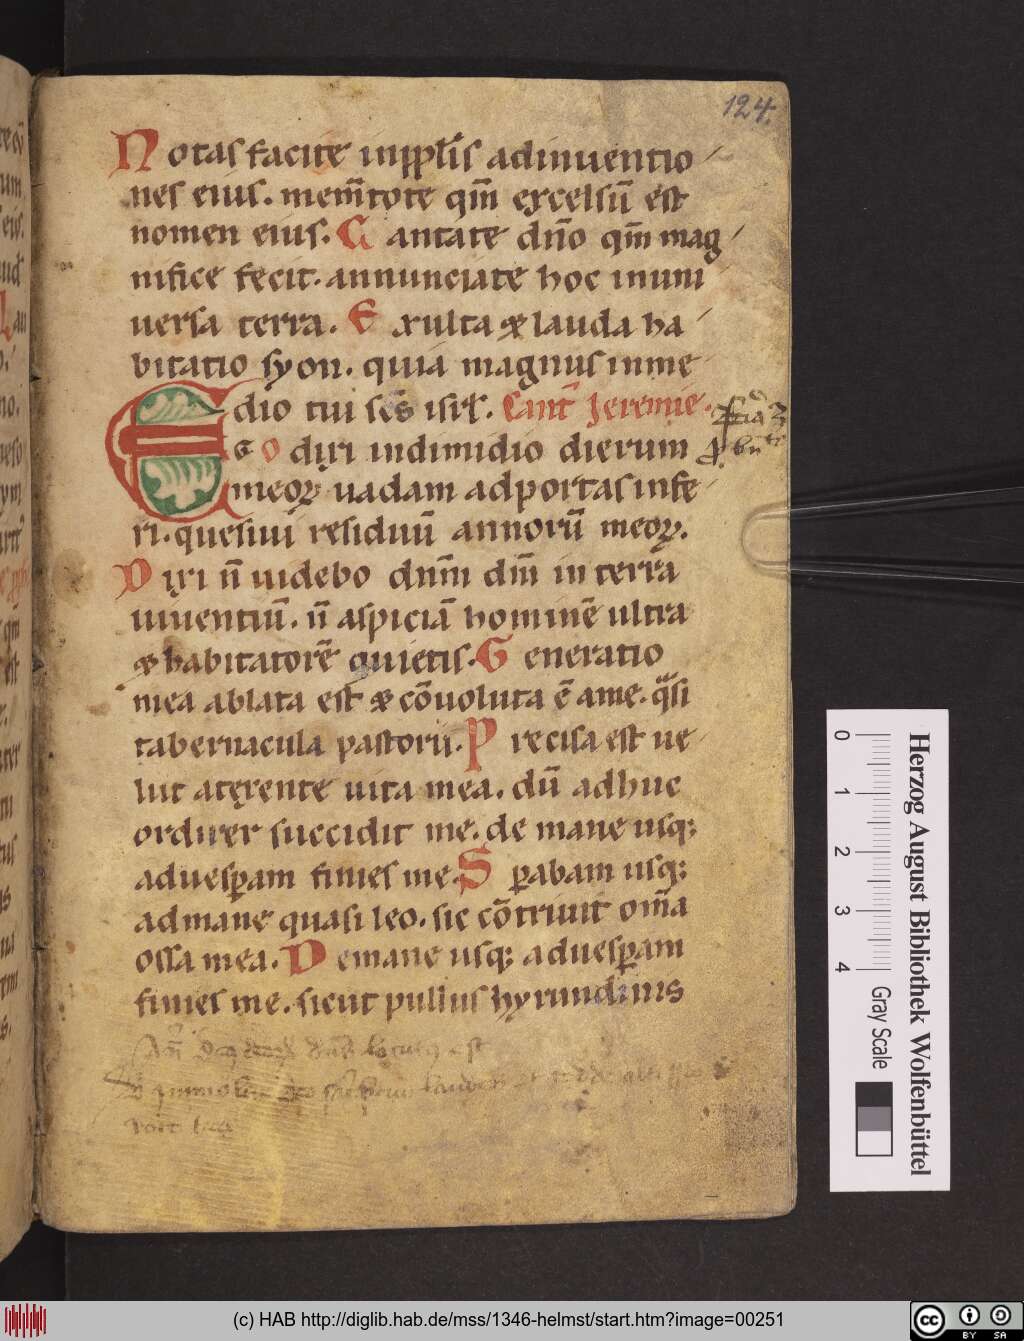 124.
Notas facite inpp̄lis adinuentio
nes eius. mem̄tote qm̄ excelsū est
nomen eius. Cantate dn̄o qm̄ mag
nifice fecit. annunciate hoc inuni
uersa terra. Exulta & lauda ha
bitatio syon. quia magnus inme
dio tui sc̄s isrl. Cant̄ Jeremie.
Ego dixi indimidio dierum
meoꝝ uadam adportas infe
ri. quesiui residuū annorū meoꝝ.
Dixi n̄ uidebo dn̄m dm̄ in terra
uiuentiū. n̄ aspiciā hominē ultra
& habitatorē quietis. Generatio
mea ablata est & cōuoluta ē ame. q̄si
tabernacula pastorū. Precisa est ue
lut atexente uita mea. dū adhuc
ordirer succidit me. de mane usq;
aduesꝑam finies me. Sꝑabam usq;
admane quasi leo. sic cōtriuit om̄a
ossa mea. Demane usq; aduesꝑam
finies me. sicut pullus hyrundinis
Herzog August Bibliothek Wolfenbüttel
0 1 2 3 4 Gray Scale
(c) HAB http://diglib.hab.de/mss/1346-helmst/start.htm?image=00251
cc BY SA